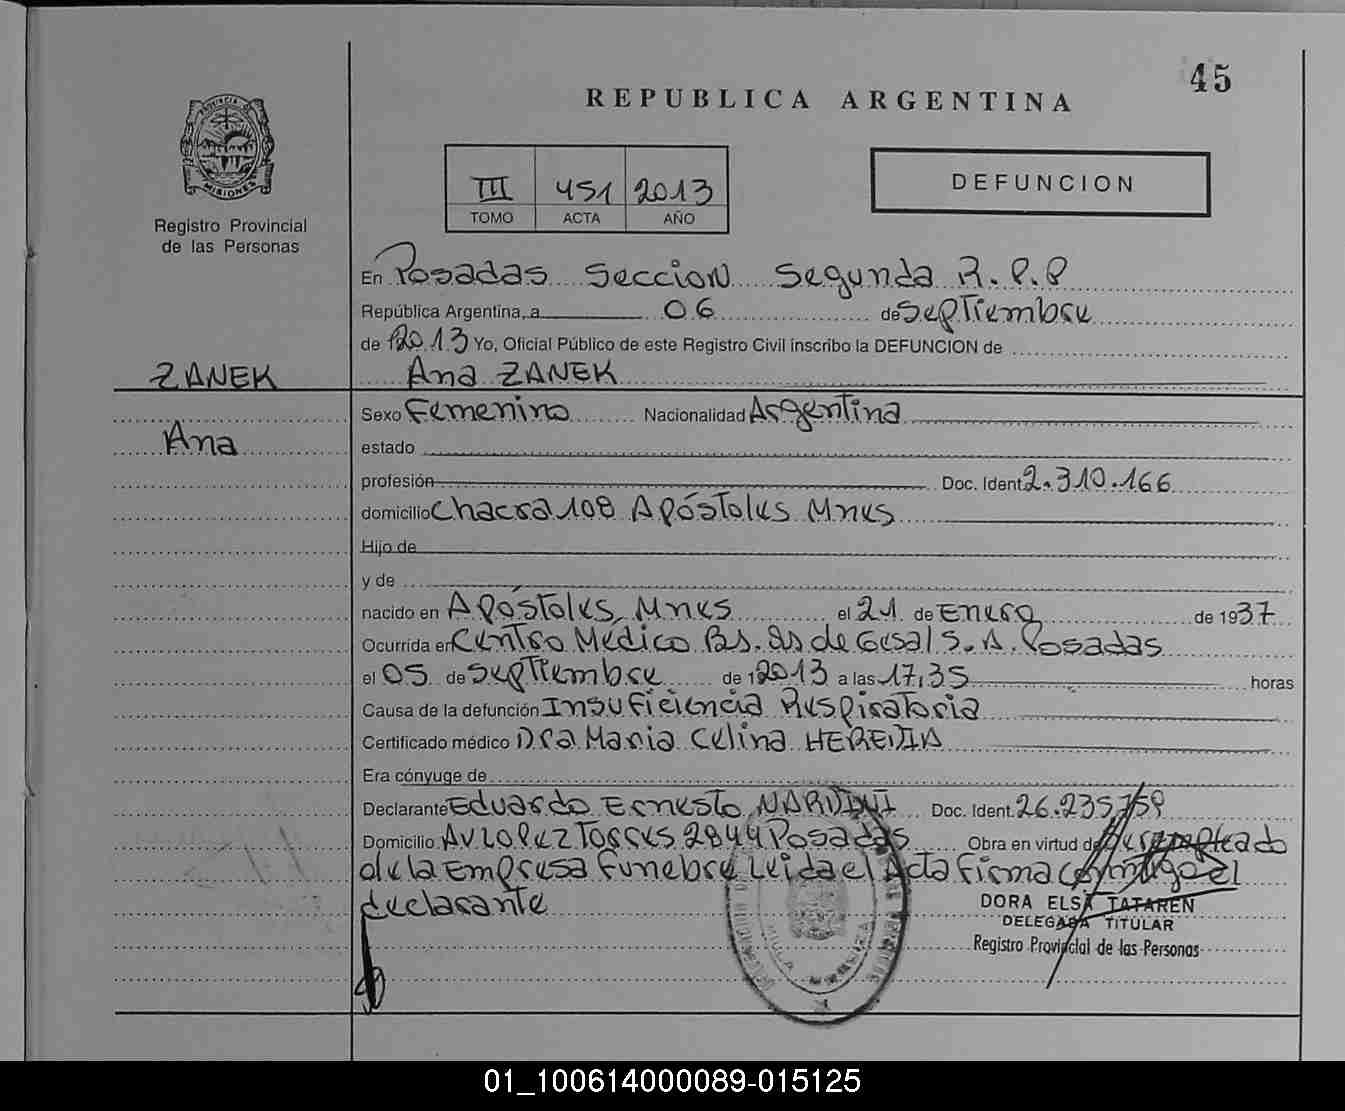 45
REPUBLICA ARGENTINA
PROVINCIA DE
MISIONES
Registro Provincial
de las Personas
III 451 2013
TOMO ACTA AÑO
DEFUNCION
En Posadas Seccion Segunda R.P.P
República Argentina, a 06 de Septiembre
de 2013 Yo, Oficial Público de este Registro Civil inscribo la DEFUNCION de
ZANEK Ana ZANEK
Sexo Femenino Nacionalidad Argentina
Ana
estado
profesión Doc. Ident 2.310.166
domicilio Chacra 108 Apóstoles Mnes
Hijo de
y de
nacido en Apóstoles, Mnes el 21 de Enero de 1937
Ocurrida en Centro Medico Bs. As de Gesal S.A. Posadas
el 05 de Septiembre de 12013 a las 17,35 horas
Causa de la defunción Insuficiencia Respiratoria
Certificado médico Dra Maria Celina HEREDIA
Era cónyuge de
Declarante Eduardo Ernesto NARDINI Doc. Ident. 26.235.759
Domicilio Av Lopez Torres 2844 Posadas Obra en virtud de ser empleado
de la Empresa Funebre Leida el Acta firma conmigo el
declarante
DORA ELSA TATAREN
DELEGADA TITULAR
Registro Provincial de las Personas
01_100614000089-015125